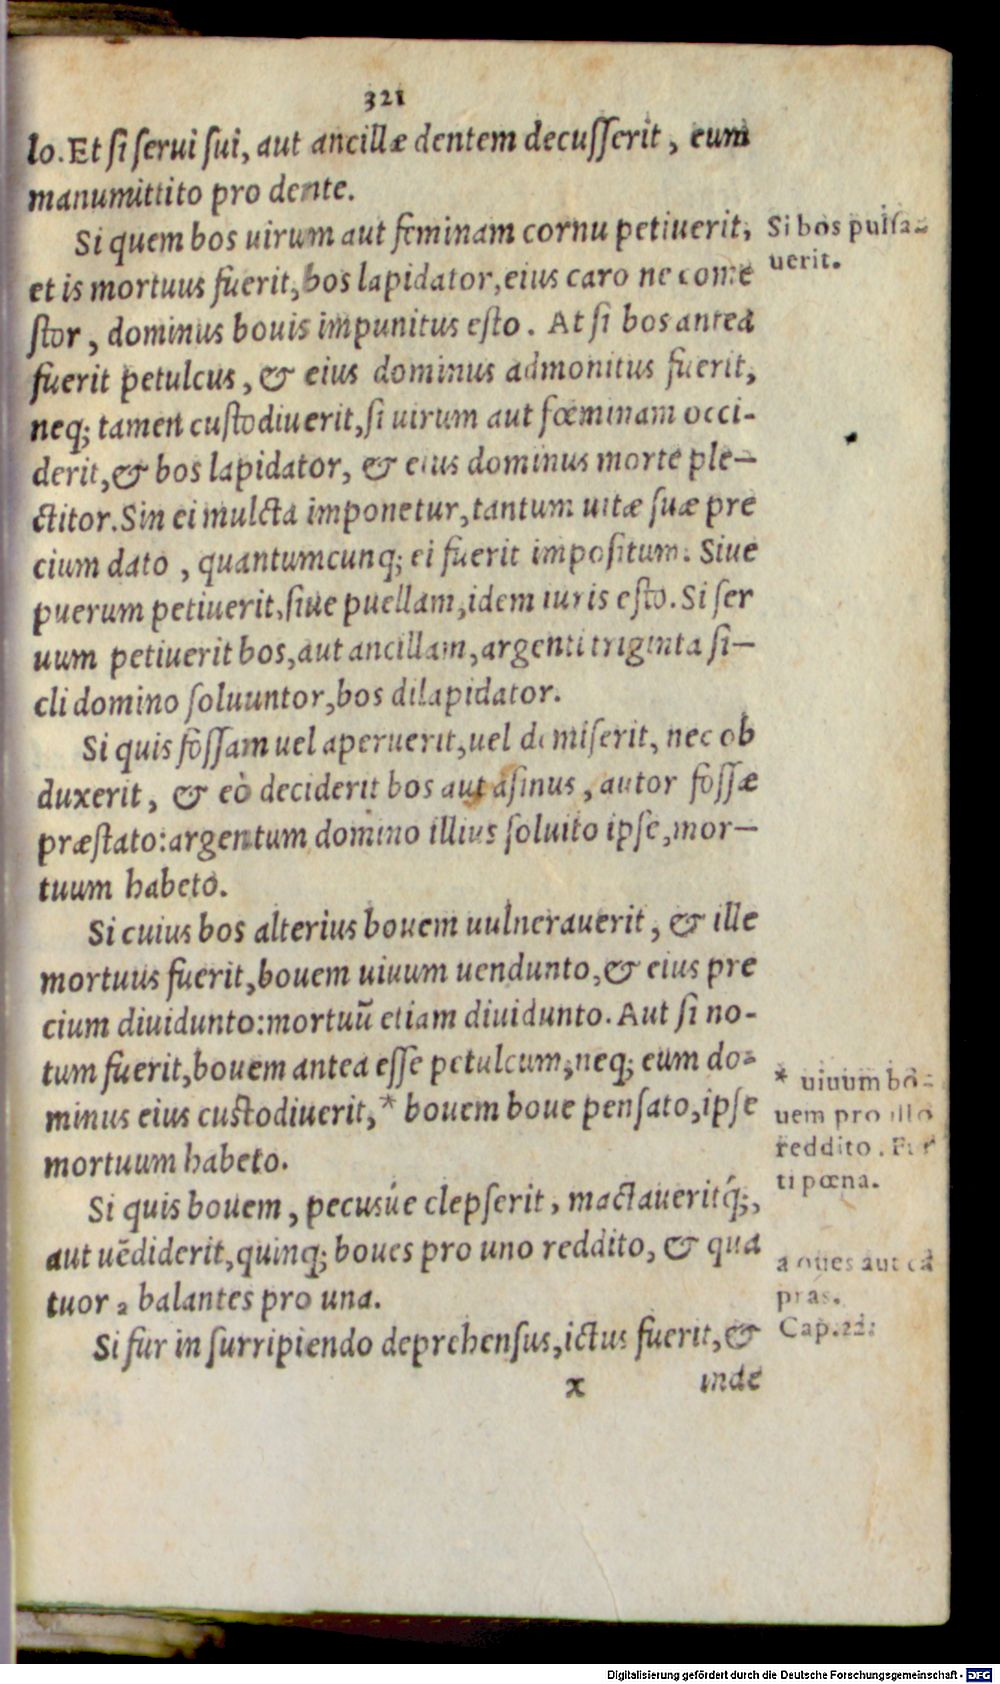 321
lo. Et ſi ſerui ſui, aut ancillæ dentem decuſſerit, eum
manumittito pro dente.
Si quem bos uirum aut feminam cornu petiuerit,
et is mortuus fuerit, bos lapidator, eius caro ne come
ſtor, dominus bouis impunitus eſto. At ſi bos antea
fuerit petulcus, & eius dominus admonitus fuerit,
neq; tamen cuſtodiuerit, ſi uirum aut fœminam occi-
derit, & bos lapidator, & eius dominus morte ple-
ctitor. Sin ei mulcta imponetur, tantum uitæ ſuæ pre
cium dato, quantumcunq; ei fuerit impoſitum. Siue
puerum petiuerit, ſiue puellam, idem iuris eſto. Si ſer
uum petiuerit bos, aut ancillam, argenti triginta ſi-
cli domino ſoluuntor, bos dilapidator.
Si quis foſſam uel aperuerit, uel demiſerit, nec ob
duxerit, & eò deciderit bos aut aſinus, autor foſſæ
præſtato: argentum domino illius ſoluito ipſe, mor-
tuum habeto.
Si cuius bos alterius bouem uulnerauerit, & ille
mortuus fuerit, bouem uiuum uendunto, & eius pre
cium diuidunto: mortuū etiam diuidunto. Aut ſi no-
tum fuerit, bouem antea eſſe petulcum, neq; eum do-
minus eius cuſtodiuerit, * bouem boue penſato, ipſe
mortuum habeto.
Si quis bouem, pecusúe clepſerit, mactaueritq́;,
aut uēdiderit, quinq; boues pro uno reddito, & qua
tuor a balantes pro una.
Si fur in ſurripiendo deprehenſus, ictus fuerit, &
x inde
Si bos pulſa-
uerit.
* uiuum bo-
uem pro illo
reddito. Fur
ti pœna.
a oues aut ca
pras.
Cap. 22.
Digitalisierung gefördert durch die Deutsche Forschungsgemeinschaft - DFG